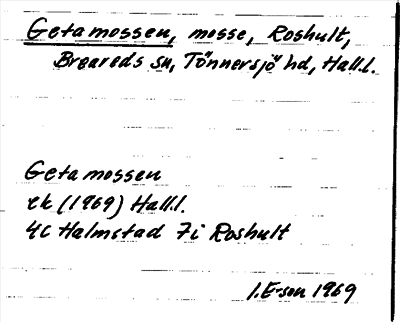 Getamossen, mosse, Roshult,
Breareds sn, Tönnersjö hd, Hall.l.
Getamossen
ek (1969) Hall.l.
4C Halmstad 7i Roshult
I.E-son 1969